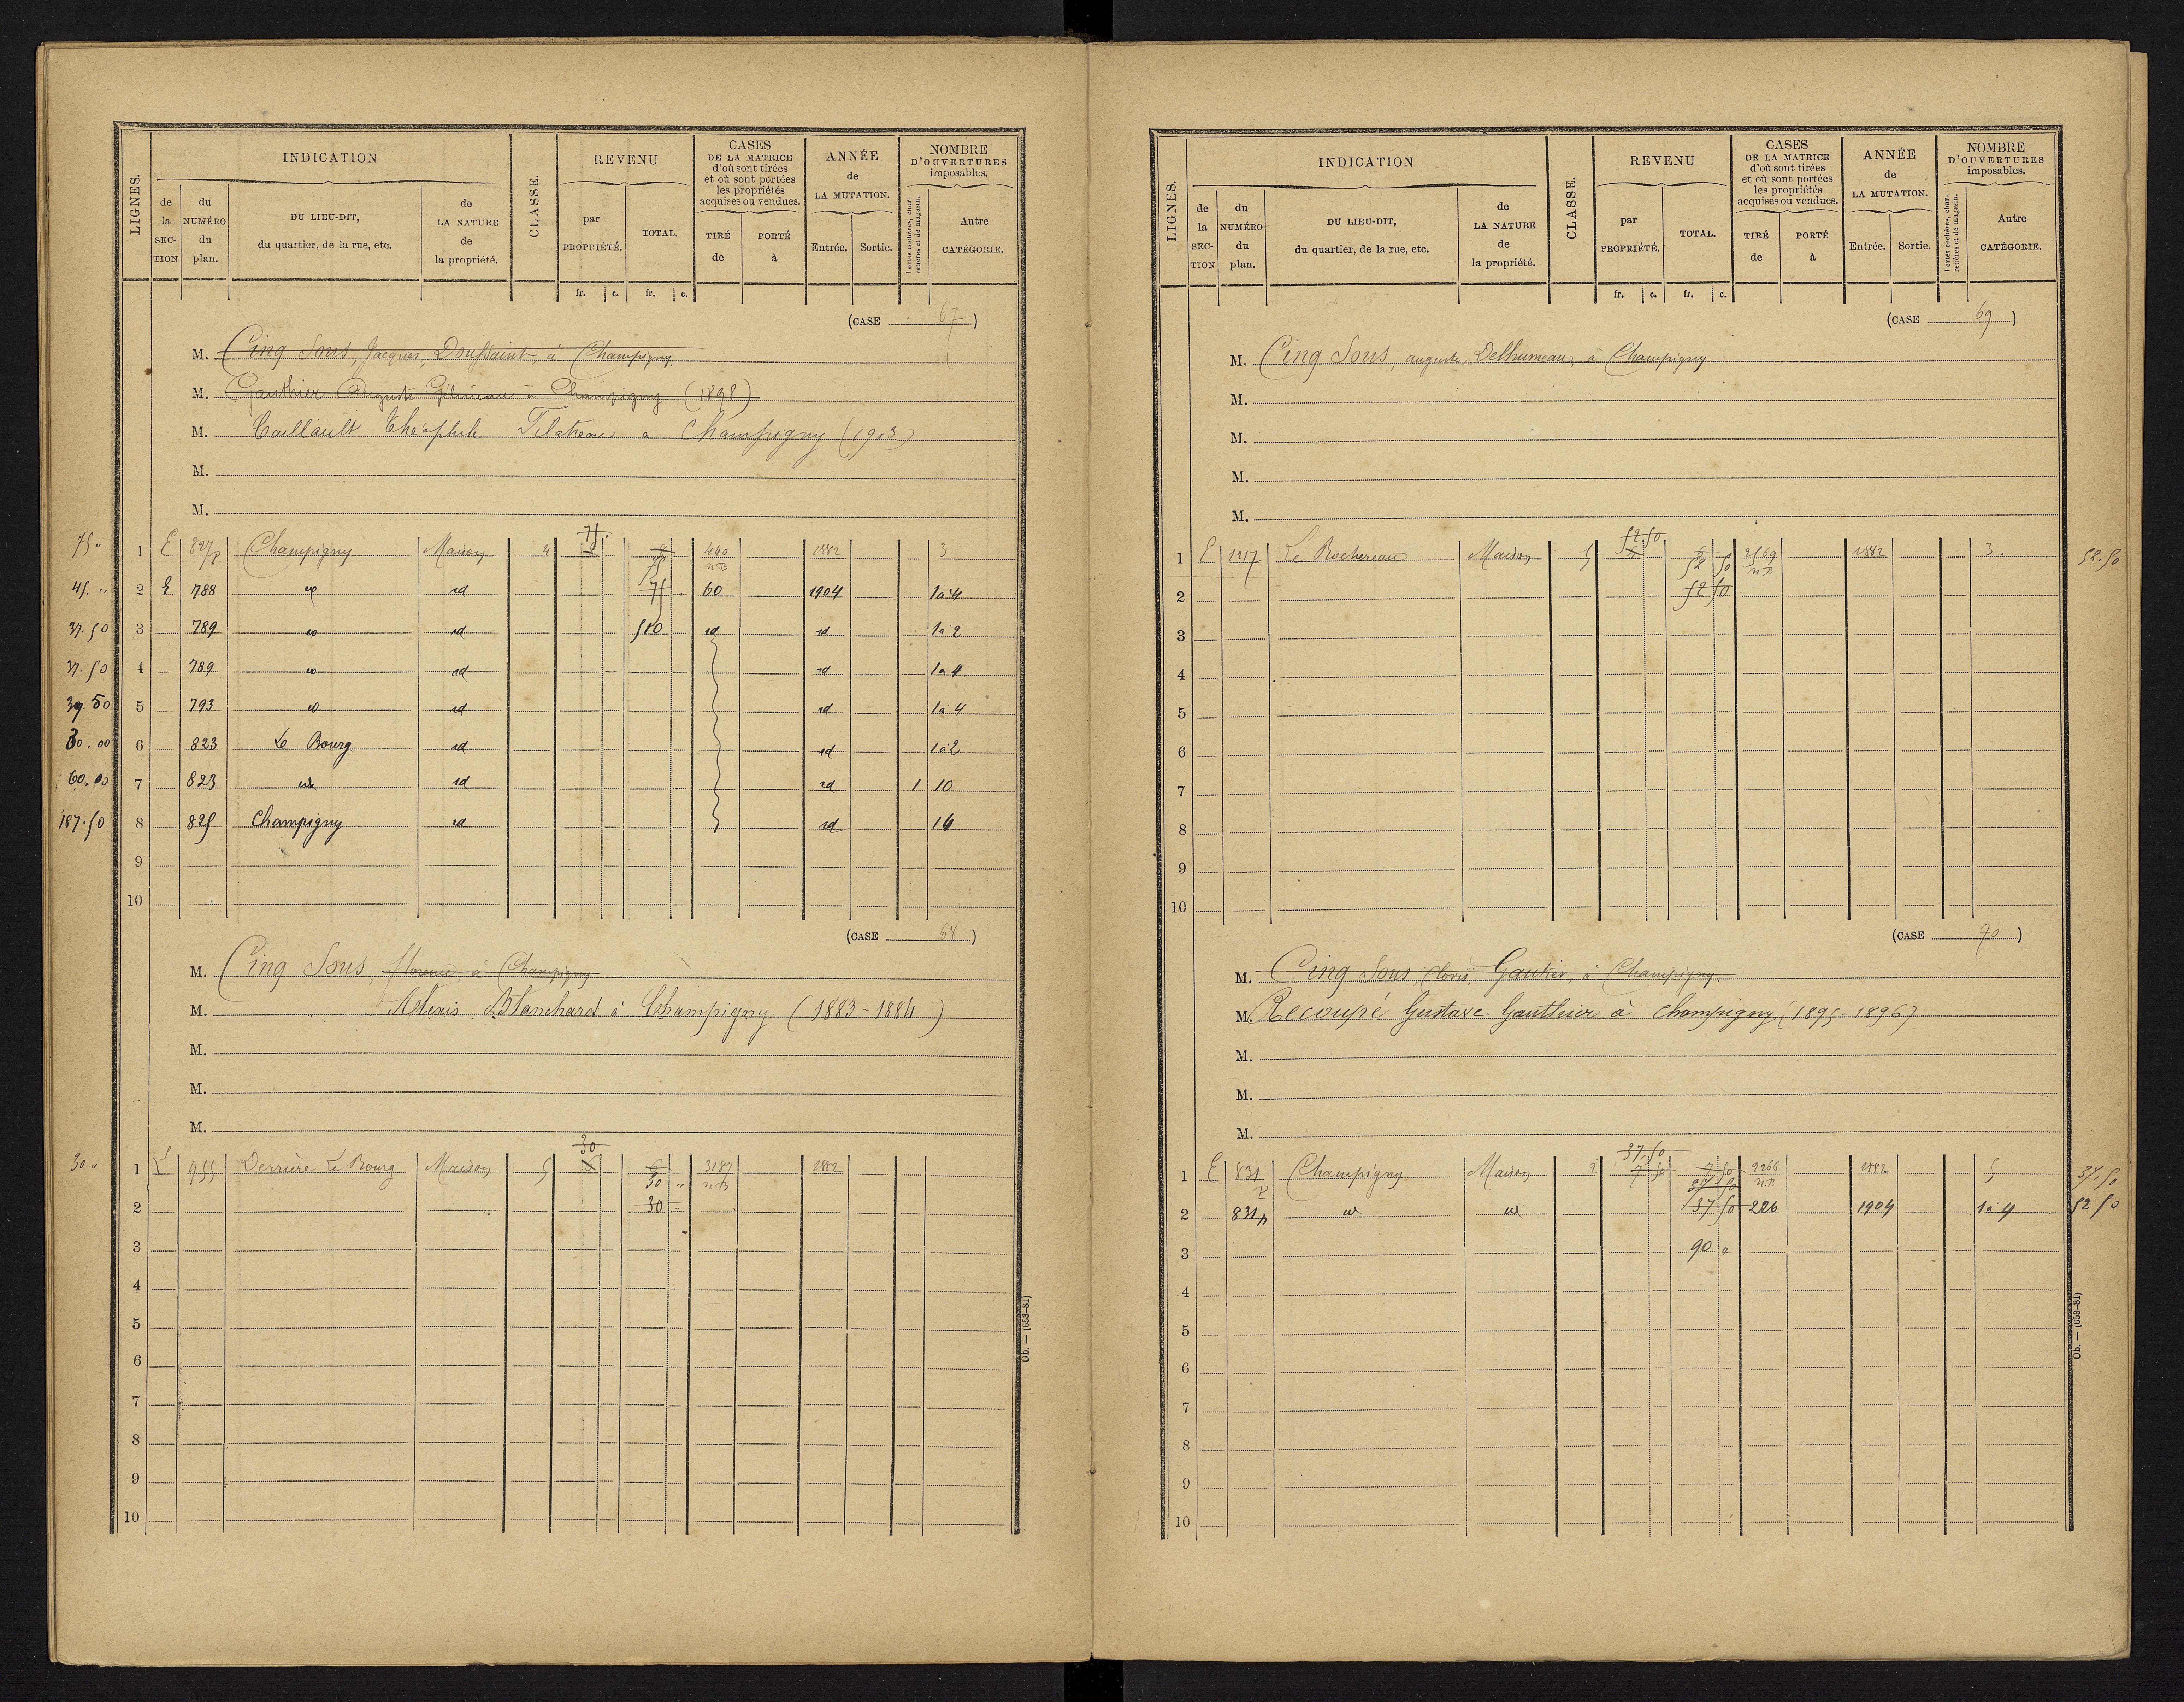 LIGNES. INDICATION CLASSE. REVENU CASES DE LA MATRICE d'où sont tirées et où sont portées les propriétés acquises ou vendues. ANNÉE de LA MUTATION. NOMBRE D'OUVERTURES imposables.
de la SECTION du NUMÉRO du plan. DU LIEU-DIT, du quartier, de la rue, etc. de LA NATURE de la propriété. par PROPRIÉTÉ. TOTAL. TIRÉ de PORTÉ à Entrée. Sortie. Portes cochères, charretières et de magasin. Autre CATÉGORIE.
fr. c. fr. c.
(CASE 67)
M. Cinq Sous, Jacques, Doussaint, à Champigny.
M. Gauthier Auguste Gélineau à Champigny (1898)
M. Caillault Théophile à Champigny (1903)
M.
M.
75 " 1 E 827 p Champigny Maison 4 75. 75 440 n.B 1882 3
45. " 2 E 788 id 75 60 1904 1à4
37.50 3 789 id 510 id id 1à2
37.50 4 789 id id 1à4
37.50 5 793 id id 1à4
30.00 6 823 Le Bourg id id 1à2
60.00 7 823 id id id 1 10
187.50 8 825 Champigny id id 14
9
10
(CASE 68)
M. Cinq Sous, florence, à Champigny
M. Alexis Blanchard à Champigny (1883-1884)
M.
M.
M.
30 " 1 E 955 Derrière Le Bourg Maison 5 30 6 6 30 " 3187 n.B 1882
2 30
3
4
5
6
7
8
9
10
Ob. — (653-81)
LIGNES. INDICATION CLASSE. REVENU CASES DE LA MATRICE d'où sont tirées et où sont portées les propriétés acquises ou vendues. ANNÉE de LA MUTATION. NOMBRE D'OUVERTURES imposables.
de la SECTION du NUMÉRO du plan. DU LIEU-DIT, du quartier, de la rue, etc. de LA NATURE de la propriété. par PROPRIÉTÉ. TOTAL. TIRÉ de PORTÉ à Entrée. Sortie. Portes cochères, charretières et de magasin. Autre CATÉGORIE.
fr. c. fr. c.
(CASE 69)
M. Cinq Sous, auguste, Delhumeau, à Champigny
M.
M.
M.
M.
1 E 1217 Le Rochereau Maison 5 52 50 6 6 52 50 2569 n.B 1882 3. 52.50
2 52 50
3
4
5
6
7
8
9
10
(CASE 70)
M. Cinq Sous, Clovis, Gautier, à Champigny.
M. Recoupé Gustave Gauthier à Champigny (1895-1896)
M.
M.
M.
1 E 831 p Champigny Maison 2 37.50 7 50 7 50 37 50 2266 n.B 1882 5 37.50
2 831 p id id 37 50 226 1904 1à4 52 50
3 90 "
4
5
6
7
8
9
10
Ob. — (653-81)